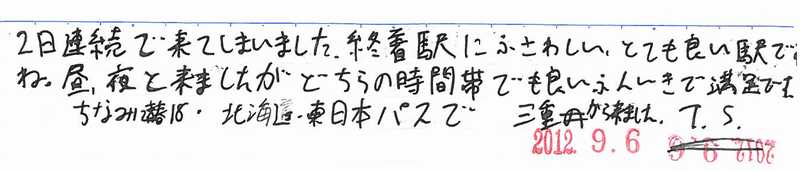 2日連続で来てしまいました。終着駅にふさわしい、とても良い駅で
ね。昼、夜と来ましたがどちらの時間帯でも良いふんいきで満足です
ちなみに 18・北海道・東日本パスで 三重から来ました。T.S.
2012.9.6 2012.9.6